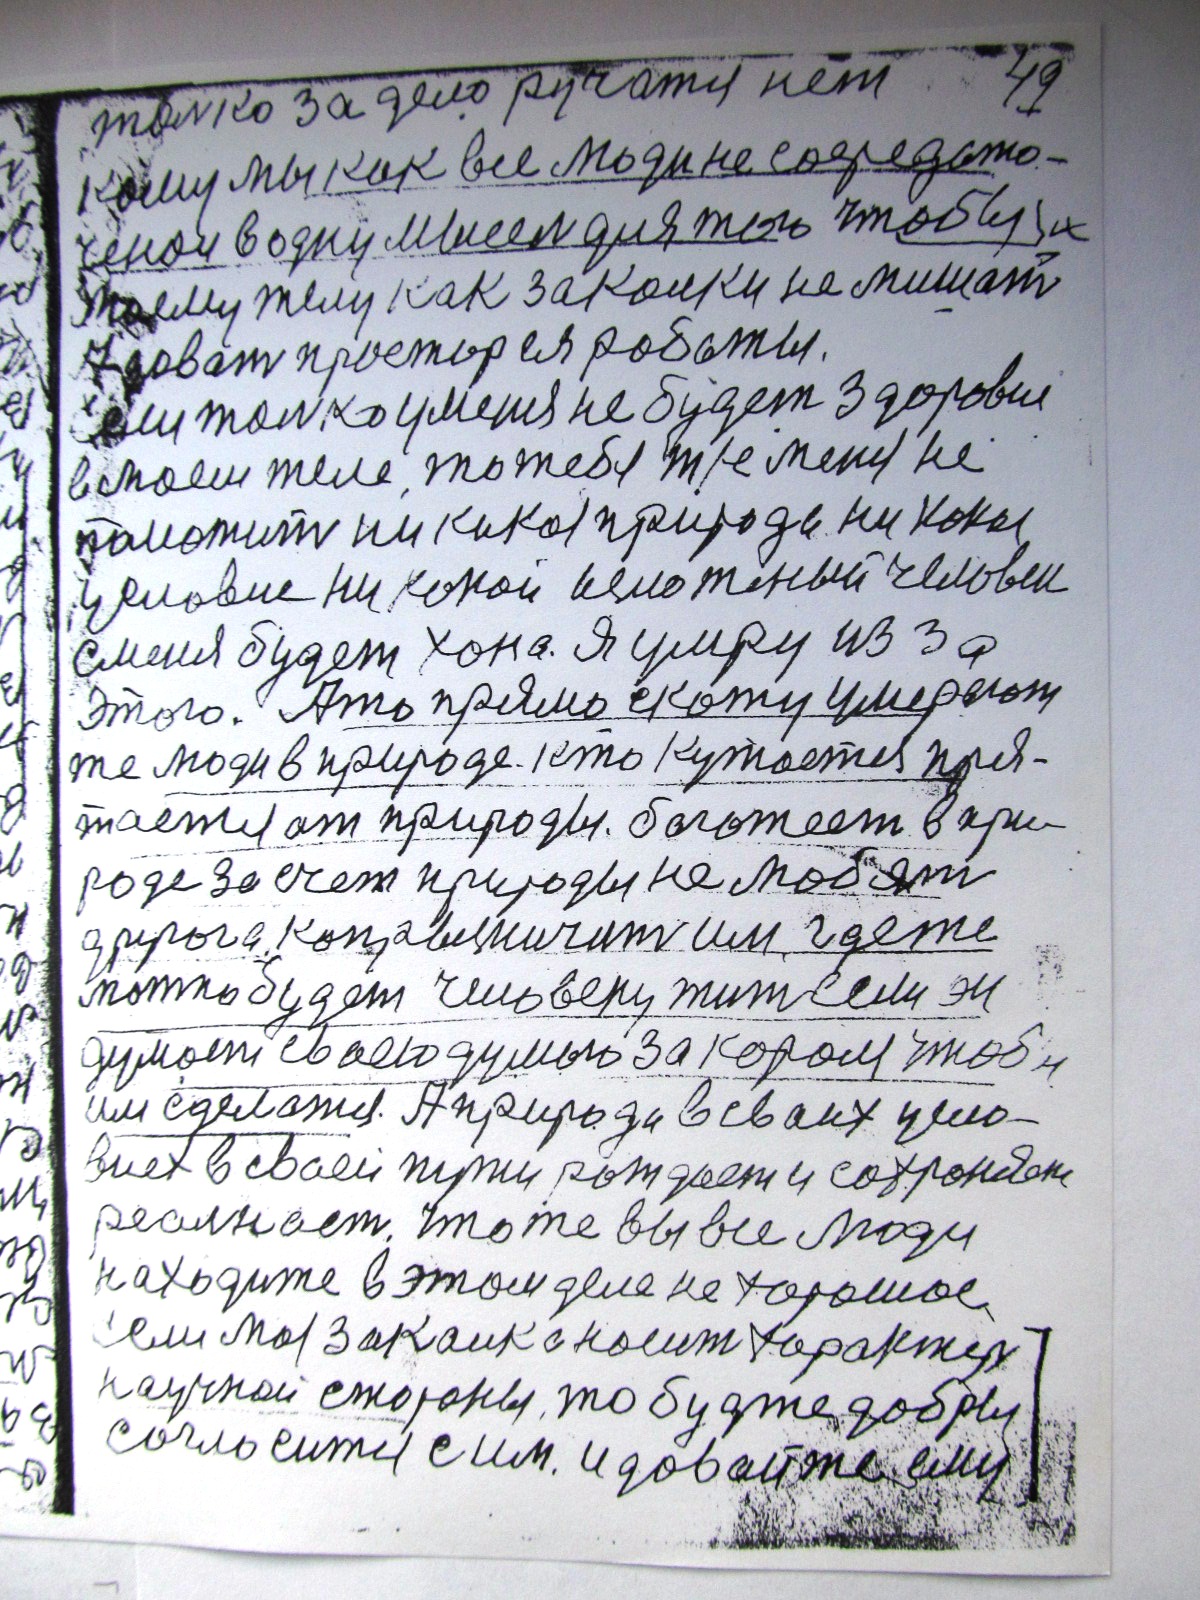 толко за дело ручатя нет 49
кому мы как все люди не сосредото-
ченои в одну мысел для того чтобы
моему телу как закалки не мишат
А доват простор ся работы.
Если толко у меня не будет здоровие
в моем теле, то тебя тже меня не
поможит ни какая природа ни кокая
условие ни кокой человек
с меня будет хона. Я умру из за
этого. А то прямо скожу умерают
же люди в природе. кто кутается пря-
тается от природы. богатеет в при-
роде за счет природы не любят
друг друга им, где же
можно будет человеку жит если эн
думает своею думою за кором чтоб и
им сделатя. А природа в своих усло-
виех в своей жизни рождает и сохроняет
реалност, что же вы все люди
находите в этом деле не хорошое,
Если моя закалка носит характер
научной стороны, то будте добры
согласится с им. и довайте ему